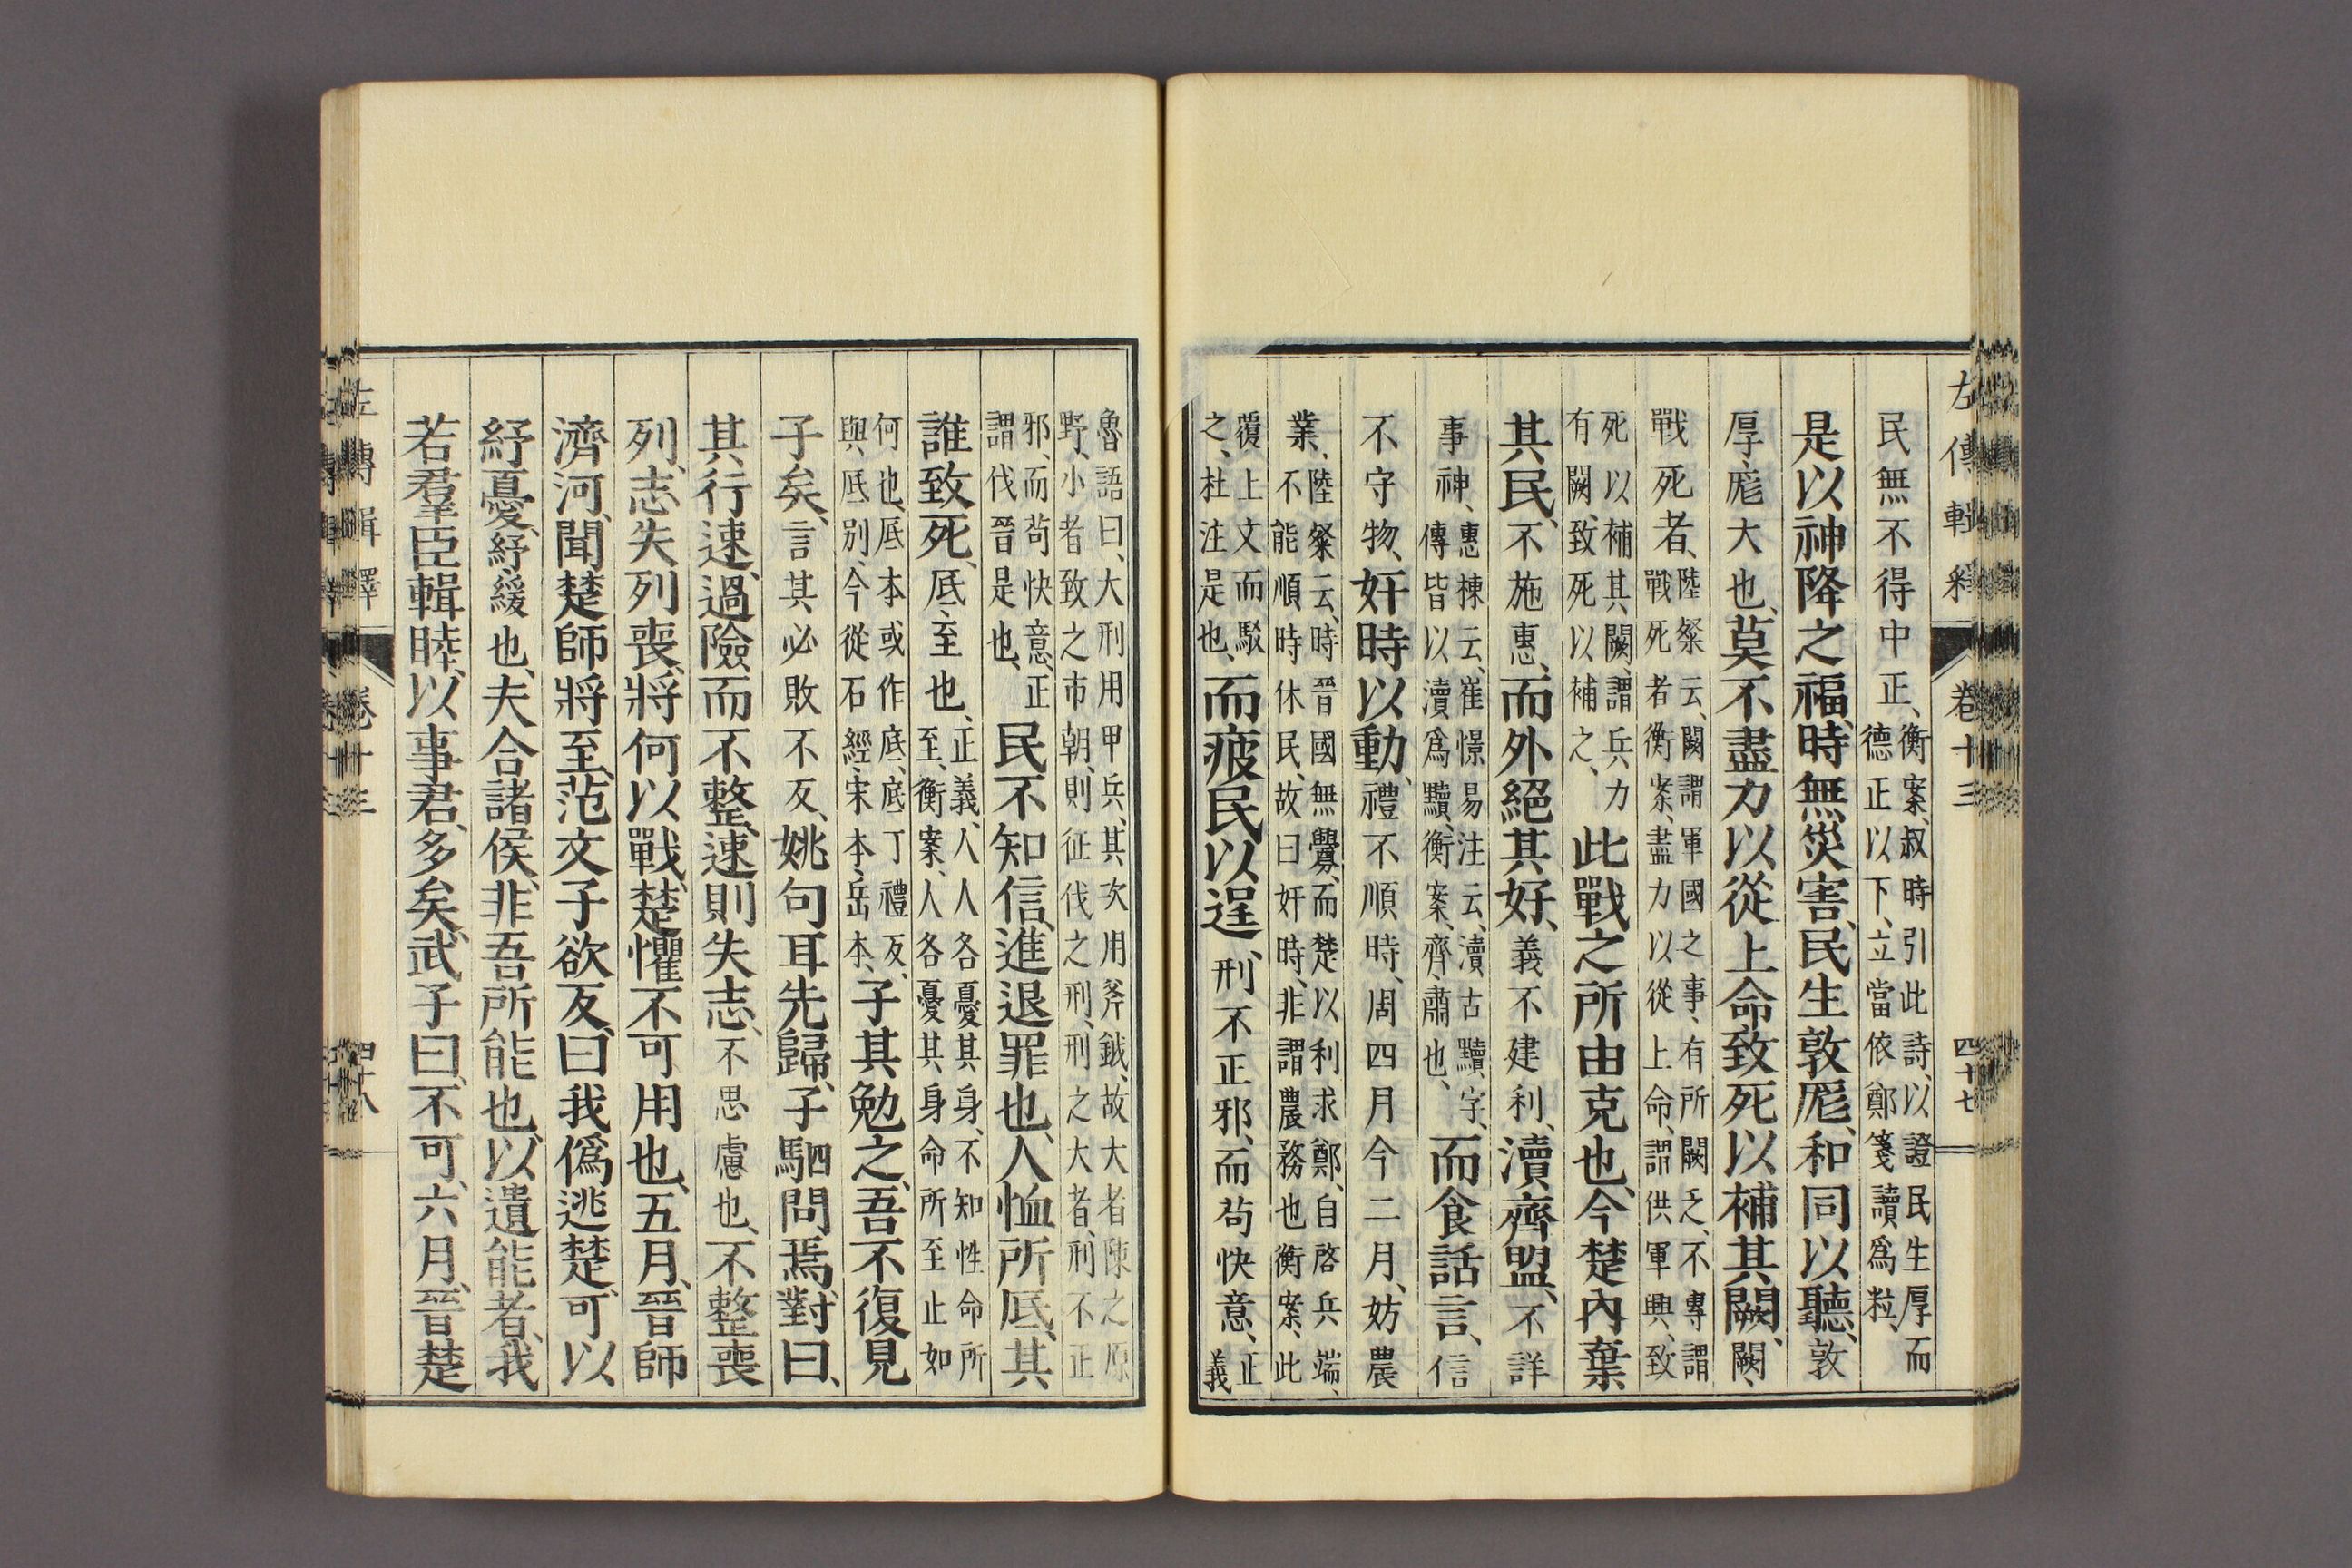 左傳輯釋 卷十三 四十七
民無不得中正、衡案、叔時引此詩、以證民生厚而德正以下、立當依鄭箋讀爲粒、
是以神降之福、時無災害、民生敦厖、和同以聽、敦
厚、厖大也、莫不盡力以從上命、致死以補其闕、闕、
戰死者、陸粲云、闕謂軍國之事、有所闕乏、不專謂戰死者、衡案、盡力以從上命、謂供軍興、致
死以補其闕、謂兵力有闕、致死以補之、此戰之所由克也、今楚內棄
其民、不施惠、而外絕其好、義不建利、瀆齊盟、不詳
事神、惠棟云、崔憬易注云、瀆古黷字、傳皆以瀆爲黷、衡案、齊、肅也、而食話言、信
不守物、奸時以動、禮不順時、周四月今二月、妨農
業、陸粲云、時晉國無釁、而楚以利求鄭、自啓兵端、不能順時休民、故曰奸時、非謂農務也、衡案、此
覆上文而駁之、杜注是也、而疲民以逞、刑不正邪、而苟快意、正義
魯語曰、大刑用甲兵、其次用斧鉞、故大者陳之原野、小者致之市朝、則征伐之刑、刑之大者、刑不正
邪、而苟快意、正謂伐晉是也、民不知信、進退罪也、人恤所厎、其
誰致死、厎、至也、正義、人人各憂其身、不知性命所至、衡案、人各憂其身命所至止如
何也、厎、本或作底、底丁禮反、與厎別、今從石經、宋本、岳本、子其勉之、吾不復見
子矣、言其必敗不反、姚句耳先歸、子駟問焉、對曰、
其行速、過險而不整、速則失志、不思慮也、不整喪
列、志失列喪、將何以戰、楚懼不可用也、五月、晉師
濟河、聞楚師將至、范文子欲反、曰、我偽逃楚、可以
紓憂、紓、緩也、夫合諸侯、非吾所能也、以遺能者、我
若羣臣輯睦、以事君、多矣、武子曰、不可、六月、晉楚
左傳輯釋 卷十三 四十八